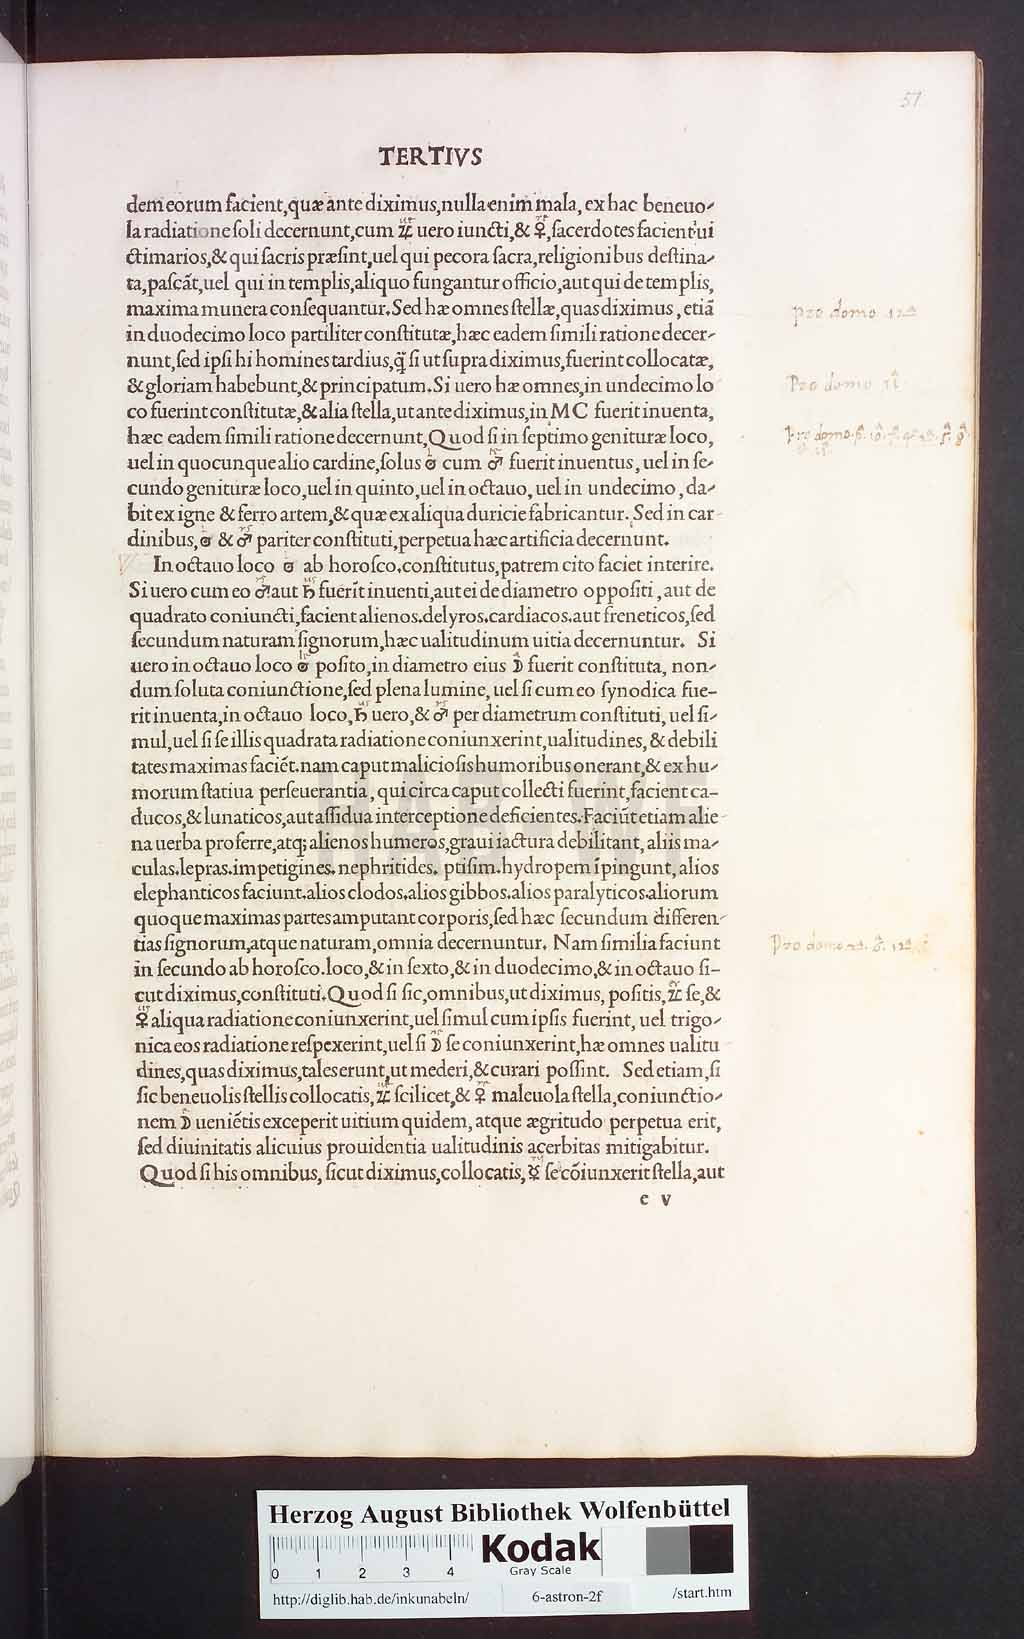 57
TERTIVS
dem eorum facient,quæ ante diximus,nulla enim mala, ex hac beneuo-
la radiatione ſoli decernunt,cum ♃ uero iuncti,& ♀,ſacerdotes facient ui
ctimarios,& qui ſacris præſint,uel qui pecora ſacra,religionibus deſtina-
ta,paſcāt,uel qui in templis,aliquo fungantur officio,aut qui de templis,
maxima munera conſequantur.Sed hæ omnes ſtellæ,quas diximus, etiā
in duodecimo loco partiliter conſtitutæ,hæc eadem ſimili ratione decer-
nunt,ſed ipſi hi homines tardius,q̃ ſi ut ſupra diximus,fuerint collocatæ,
& gloriam habebunt,& principatum.Si uero hæ omnes,in undecimo lo
co fuerint conſtitutæ,& alia ſtella,ut ante diximus,in MC fuerit inuenta,
hæc eadem ſimili ratione decernunt,Quod ſi in ſeptimo genituræ loco,
uel in quocunque alio cardine,ſolus ☉ cum ♂ fuerit inuentus, uel in ſe-
cundo genituræ loco,uel in quinto,uel in octauo, uel in undecimo, da-
bit ex igne & ferro artem,& quæ ex aliqua duricie fabricantur. Sed in car
dinibus,☉ & ♂ pariter conſtituti,perpetua hæc artificia decernunt.
In octauo loco ☉ ab horoſco.conſtitutus,patrem cito faciet interire.
Si uero cum eo ♂ aut ♄ fuerīt inuenti,aut ei de diametro oppoſiti, aut de
quadrato coniuncti,facient alienos.delyros.cardiacos.aut freneticos,ſed
ſecundum naturam ſignorum,hæc ualitudinum uitia decernuntur. Si
uero in octauo loco ☉ poſito,in diametro eius ☽ fuerit conſtituta, non-
dum ſoluta coniunctione,ſed plena lumine, uel ſi cum eo ſynodica fue-
rit inuenta,in octauo loco,♄ uero,& ♂ per diametrum conſtituti, uel ſi-
mul,uel ſi ſe illis quadrata radiatione coniunxerint,ualitudines, & debili
tates maximas faciēt.nam caput malicioſis humoribus onerant,& ex hu-
morum ſtatiua perſeuerantia, qui circa caput collecti fuerint,facient ca-
ducos,& lunaticos,aut aſſidua interceptione deficientes.Faciūt etiam alie
na uerba proferre,atq; alienos humeros,graui iactura debilitant, aliis ma-
culas.lepras.impetigines.nephritides. ptiſim.hydropem īpingunt, alios
elephanticos faciunt.alios clodos.alios gibbos.alios paralyticos.aliorum
quoque maximas partes amputant corporis,ſed hæc ſecundum differen-
tias ſignorum,atque naturam,omnia decernuntur. Nam ſimilia faciunt
in ſecundo ab horoſco.loco,& in ſexto,& in duodecimo,& in octauo ſi-
cut diximus,conſtituti.Quod ſi ſic,omnibus,ut diximus, poſitis,♃ ſe,&
♀ aliqua radiatione coniunxerint,uel ſimul cum ipſis fuerint, uel trigo-
nica eos radiatione reſpexerint,uel ſi ☽ ſe coniunxerint,hæ omnes ualitu
dines,quas diximus,tales erunt,ut mederi,& curari poſſint. Sed etiam,ſi
ſic beneuolis ſtellis collocatis,♃ ſcilicet,& ♀ maleuola ſtella,coniunctio-
nem ☽ ueniētis exceperit uitium quidem, atque ægritudo perpetua erit,
ſed diuinitatis alicuius prouidentia ualitudinis acerbitas mitigabitur.
Quod ſi his omnibus, ſicut diximus,collocatis,☿ ſe cōiunxerit ſtella,aut
c v
Pro domo 12ª
Pro domo 11ª
Pro domo
Pro domo 2ª. 8ª. 12ª
HAB-WF
Herzog August Bibliothek Wolfenbüttel
Kodak
Gray Scale
0 1 2 3 4
http://diglib.hab.de/inkunabeln/ 6-astron-2f /start.htm